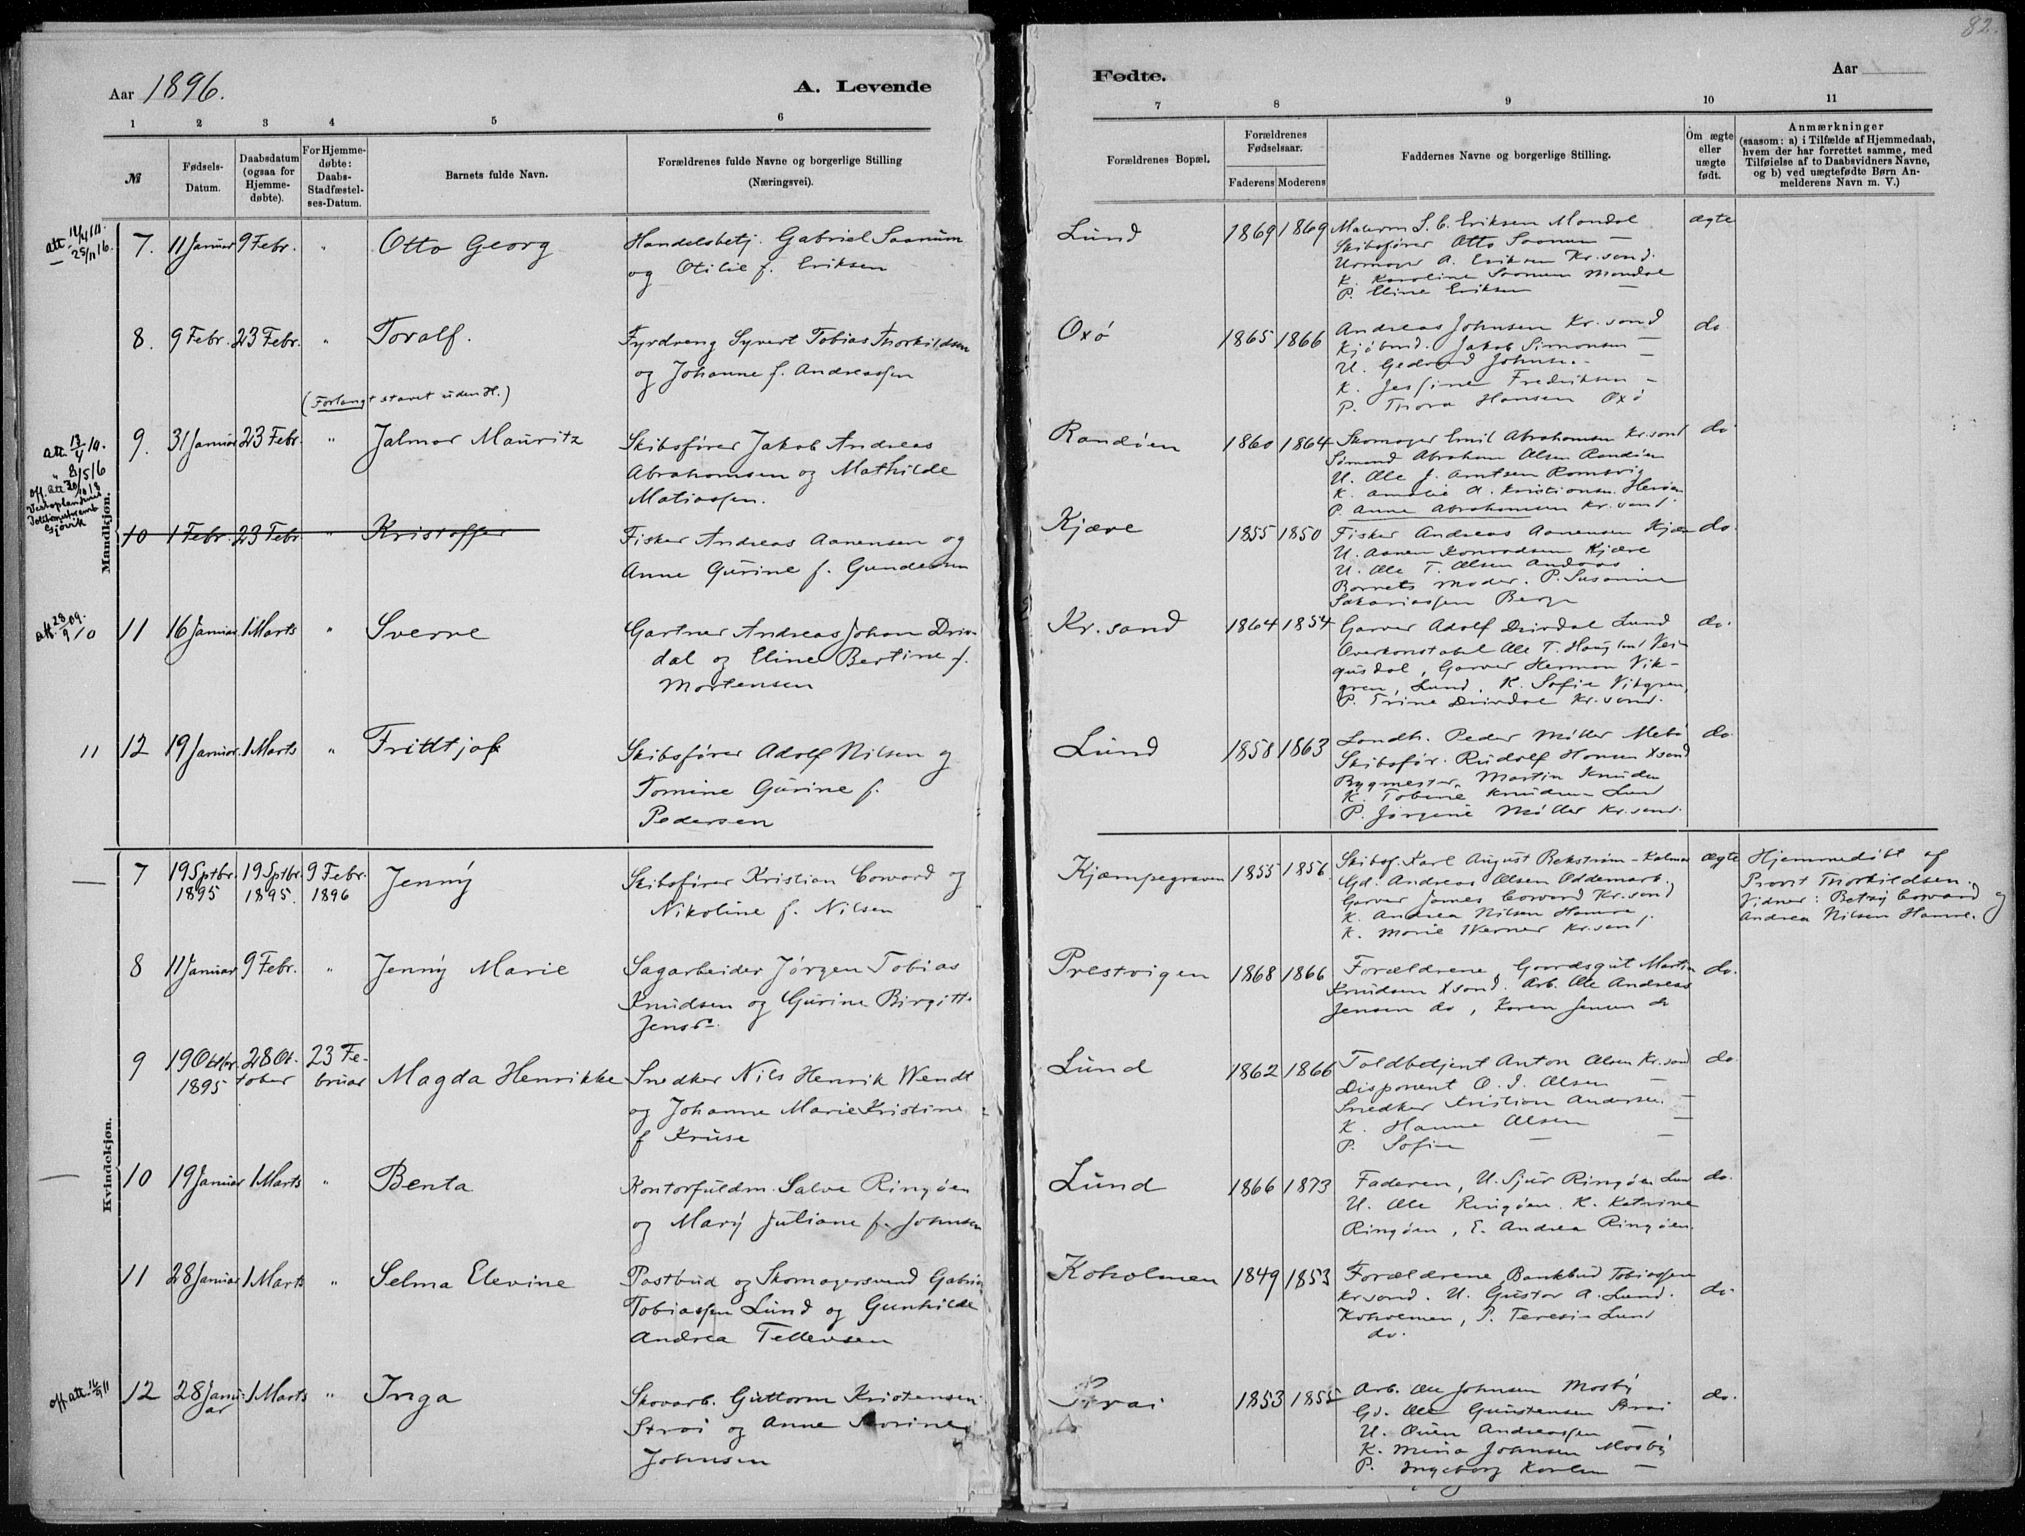 82.
Aar 1896.
A. Levende
Fødte.
Aar
1 2 3 4 5 6
7 8 9 10 11
№
Fødsels-
Datum.
Daabsdatum
(ogsaa for
Hjemme-
døbte).
For Hjemme-
døbte:
Daabs-
Stadfæstel-
ses-Datum.
Barnets fulde Navn.
Forældrenes fulde Navne og borgerlige Stilling
(Næringsvei).
Forældrenes Bopæl.
Forældrenes
Fødselsaar.
Faderens Moderens
Faddernes Navne og borgerlige Stilling.
Om ægte
eller
uægte
født.
Anmærkninger
(saasom: a) i Tilfælde af Hjemmedaab,
hvem der har forrettet samme, med
Tilføielse af to Daabsvidners Navne,
og b) ved uægtefødte Børn An-
melderens Navn m. V.)
Mandkjøn.
att.
7. 11 Januar 9 Febr. " Otto Georg
Handelsbetj. Gabriel Saanum
og Otilie f. Eriksen
Lund 1869 1869
S. C. Eriksen Mandal
Skibsfører Otto Saanum —
Urmager A. Eriksen Kr.sand.
K. Karoline Saanum Mandal
P. Eline Eriksen —
ægte
8. 9 Febr. 23 Febr. " Toralf.
Fyrdreng Syvert Tobias Thorkildsen
og Johanne f. Andreassen
Oxø 1865 1866
Andreas Johnsen Kr.sand
Kjøbmd. Jakob Simonsen —
U. Johnsen —
K. Jessine Fredriksen —
P. Thora Hansen Oxø
do
(Forlangt stavet uden H.)
att. 13/4 10.
" 8/5 16
off. att 30/10 18
Gjøvik
9. 31 Januar 23 Febr. " Jalmar Mauritz
Skibsfører Jakob Andreas
Abrahamsen og Mathilde
Matiassen.
Randøen 1860 1864
Skomager Emil Abrahamsen Kr.sand
Sømand Abraham Olsen Randøen
U. Ole J. Arntsen Romsvig
K. Amalie A. Kristiansen
P. Anne Abrahamsen Kr.sand.
do
10 1 Febr. 23 Febr. " Kristoffer
Fisker Andreas Aanensen og
Anne Gurine f. Gundersen
Kjære 1855 1850
Fisker Andreas Aanensen Kjære
U. Aanen Konradsen Kjære
U. Ole T. Olsen Andaas.
Barnets Moder. P. Susanne
Sakariassen Berge
do.
att. 28/9 09.
10
11 16 Januar 1 Marts " Sverre
Gartner Andreas Johan Driv-
dal og Eline Bertine f.
Mortensen
Kr.sand 1864 1854
Garver Adolf Drivdal Lund
Overkonstabel Ole T. Haugland Vei-
gusdal, Garver Herman Vik-
gren, Lund. K. Sofie Vikgren,
P. Trine Drivdal Kr.sand.
do.
11
12 19 Januar. 1 Marts " Frittjof
Skibsfører Adolf Nilsen og
Tomine Gurine f.
Pedersen
Lund 1858 1863
Landh. Peder Møller Mebø
Skibsfør. Rudolf Hansen Xsand
Bygmester Martin Knudsen
K. Tobine Knudsen Lund
P. Jørgine Møller Kr.sand.
do
Kvindekjøn.
—
7 19 Sptbr. 1895 19 Sptbr. 1895. 9 Febr. 1896 Jenny
Skibsfører Kristian Coward og
Nikoline f. Nilsen
Kjæmpegraven 1855 1856
Skibsf. Karl August Bekstrøm – Kalmar
Gd. Andreas Olsen Oddemark.
Garver James Coward Kr.sand
K. Andrea Nilsen Hamre,
K. Marie Werner Kr.sand
ægte
Hjemmedøbt af
Provst Thorkildsen.
Vidner: Betsy Coward og
Andrea Nilsen Hamre.
8 11 Januar 9 Febr. " Jenny Marie
Sagarbeider Jørgen Tobias
Knudsen og Gurine Birgitte
Jensen.
Prestvigen 1868 1866
Forældrene, Gaardsgut Martin
Knudsen Xsand. Arb. Ole Andreas
Jensen do, Karen Jensen do
do.
9 19 Oktbr 1895 28 Ok-tober 23 Fe-bruar Magda Henrikke
Snedker Nils Henrik Wendt
og Johanne Marie Kristine
f Kruse
Lund 1862 1866
Toldbetjent Anton Olsen Kr.sand
Disponent O. J. Olsen —
Snedker Kristian Andersen —
K. Hanna Olsen —
P. Sofie — —
do
—
10 19 Januar 1 Marts " Benta
Kontorfuldm. Salve Ringøen
og Mary Juliane f. Johnsen
Lund 1866 1873
Faderen, U. Sjur Ringøen Lund
U. Ole Ringøen. K. Katrine
Ringøen, E. Andrea Ringøen.
do.
11 28 Januar 1 Marts " Selma Elevine
Postbud og Skomagersvend Gabriel
Tobiassen Lund og Gunhilde
Andrea Tellevsen
Koholmen 1849 1853
Forældrene, Bankbud Tobiassen
Kr.sand. U. Gustav A. Lund.
Koholmen, P. Teresie Lund
do.
do.
off. att. 16/9 11
12 28 Janu-ar 1 Marts " Inga
Skovarb. Guttorm Kristensen
Strai og Anne Severine
Johnsen
Strai 1853 1855
Arb. Ole Johnsen Mosby
Gd. Ole Gunstensen Strai
U. Ouen Andreassen —
K. Mina Johnsen Mosby
P. Ingeborg Karlsen —
do.